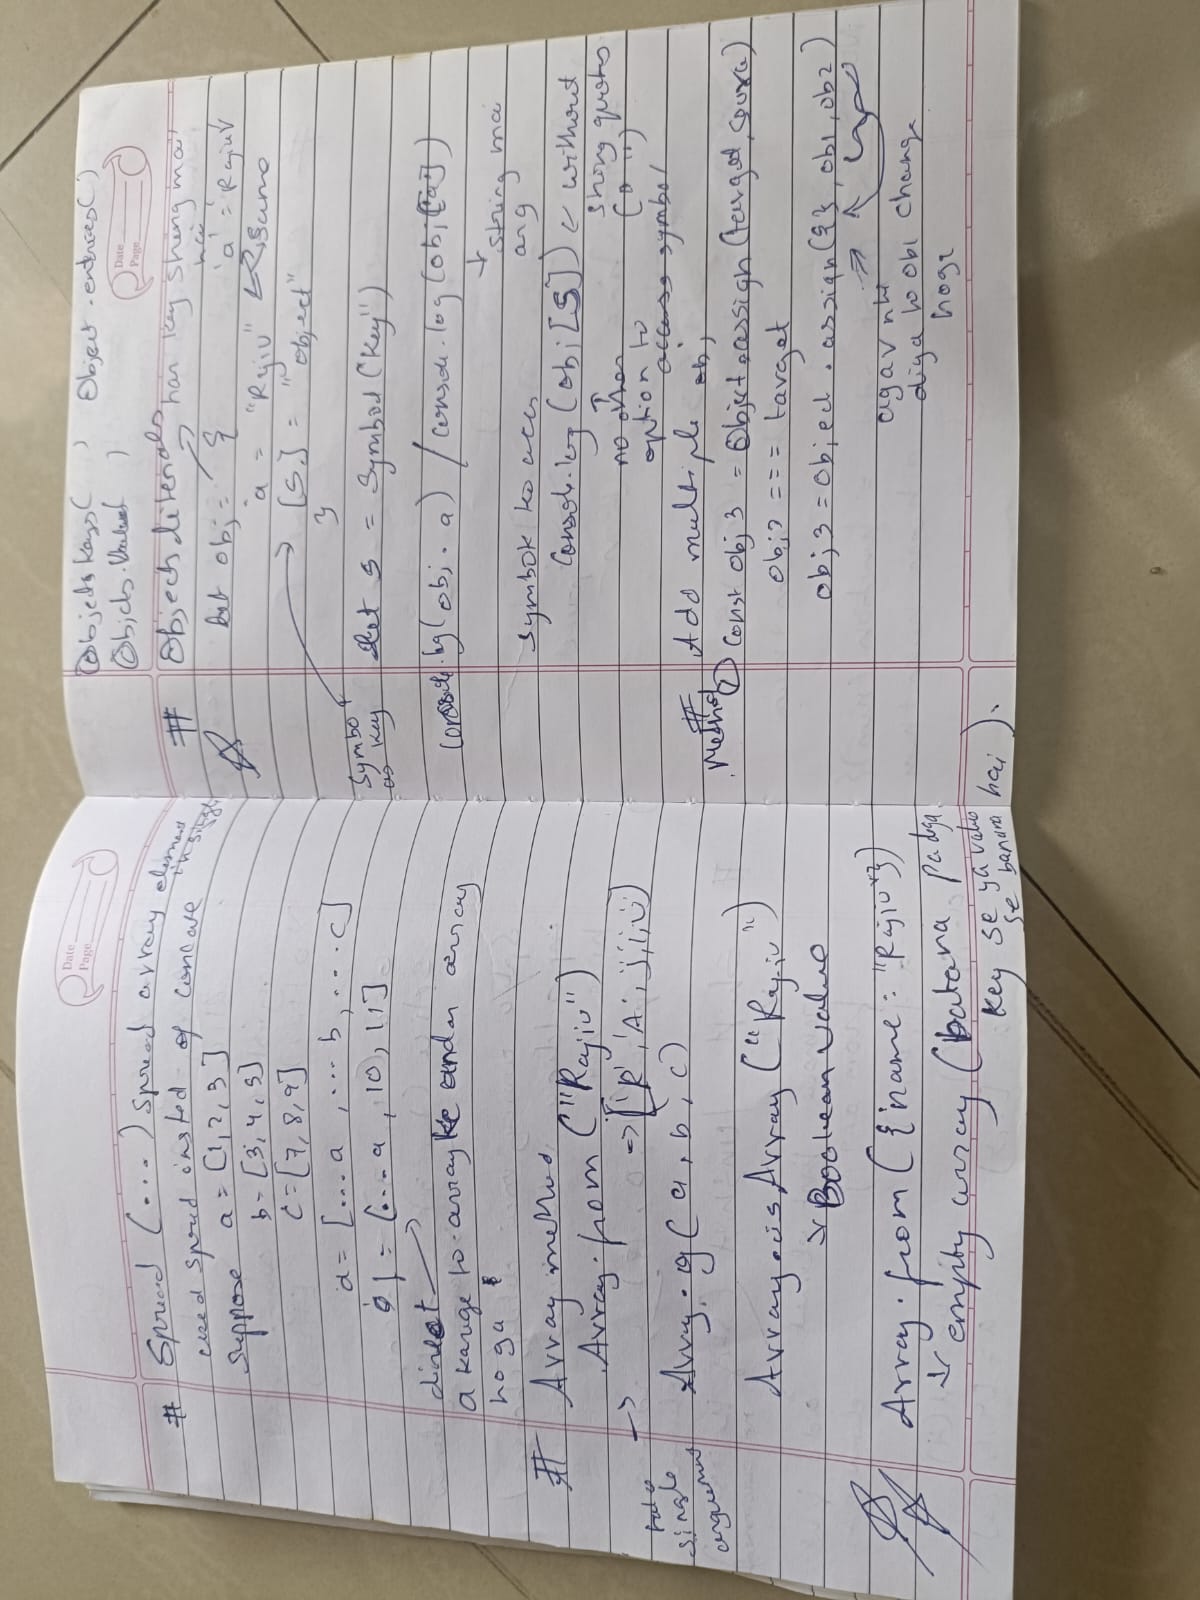 Date
Page
# Spread (...) Spread array element
used spred insted - of concave in single
Suppose a = [1, 2, 3]
b = [3, 4, 5]
c = [7, 8, 9]
d = [... a, ... b, ... c]
= [... a, 10, 11]
direct
a karge to array ke andar array
hoga
# Array method
Array.from ("Rajiv")
-> => ['R', 'A', j, i, v]
take
single
arguemnt
Array.of (a, b, c)
Array.isArray ("Rajiv")
↳ Boolean Value
Array.from ({name: "Rajiv"})
↳ empty array (batana padga
key se ya value
se banana hai).
Date
Page
Objects.keys( ) Object.entries()
Objects.values( )
# Objects literals
har key string mai
hai
let obj = {
'a' = 'Rajiv'
a = "Rajiv" same
[s] = "object"
}
Symbol
as key
let s = Symbol("key")
console.log(obj.a) / console.log(obj["a"])
↓ string mai
arg
symbok ko acces
console.log (obj[s]) < without
string quotes
(" ")
no other
option to
access symbol
# Add multiple obj
Method ① const obj3 = Object.assign(target, source)
obj3 === target
obj3 = Object.assign({}, ob1, ob2)
agar nhi
diya to ob1 change
hoga